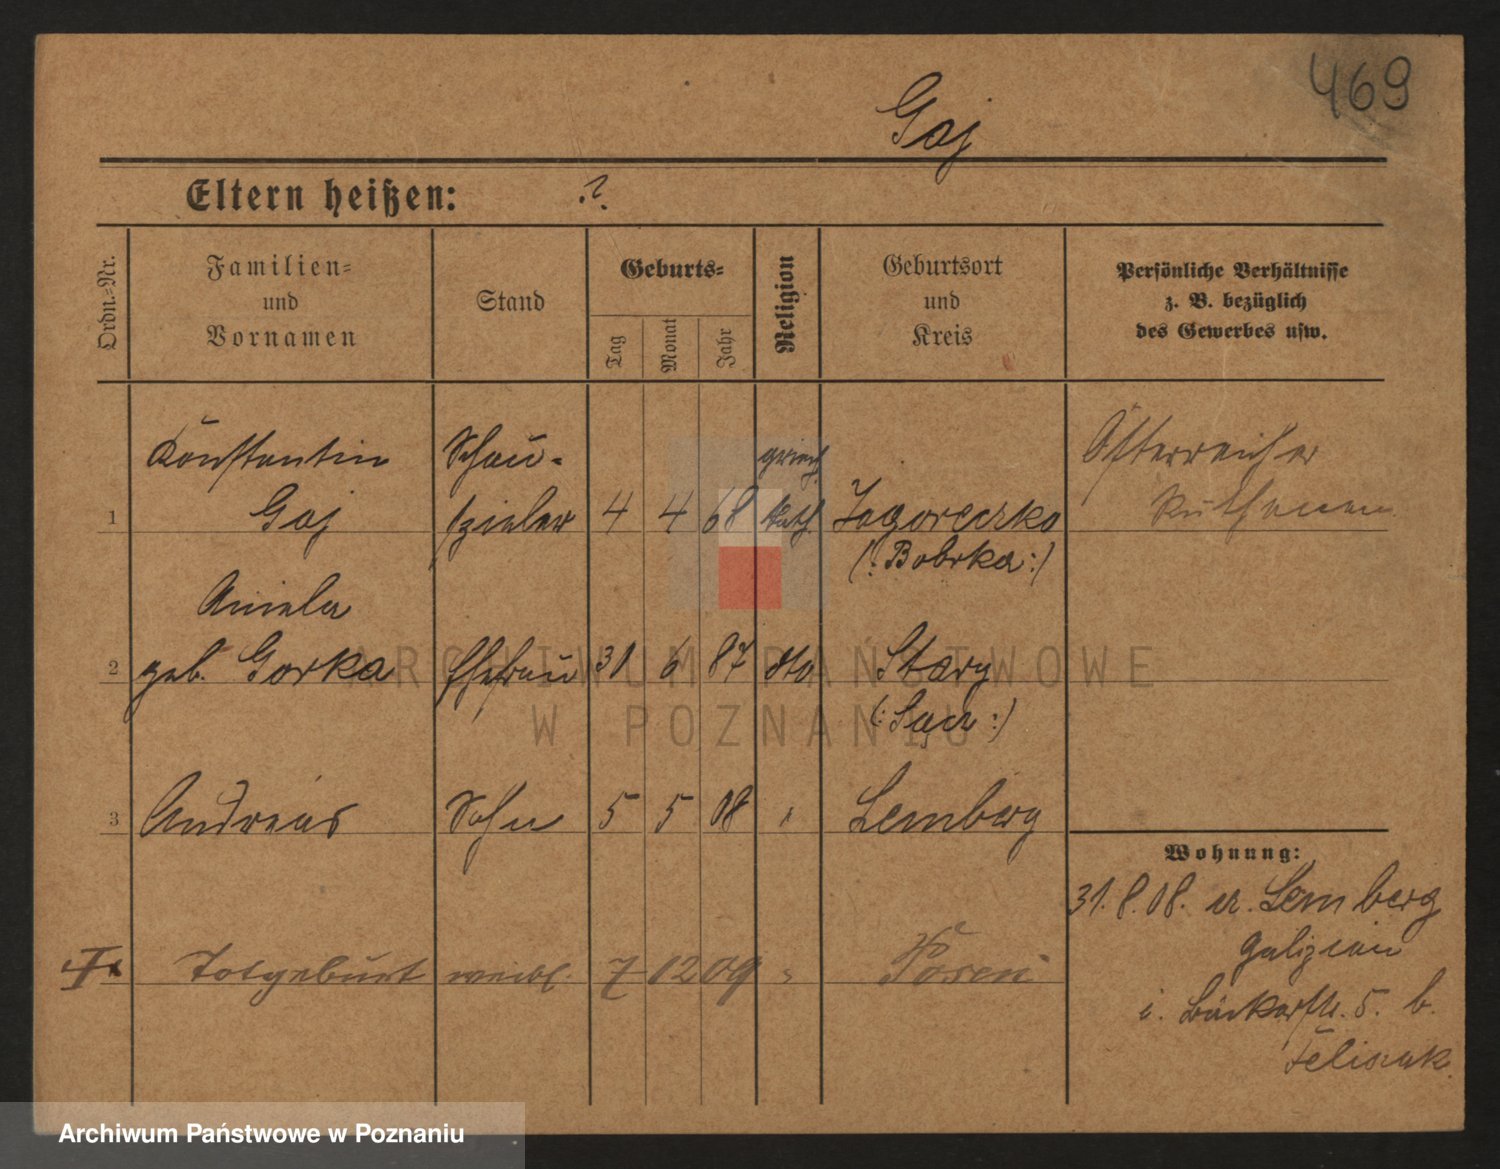 469
Gaj
Eltern heißen: ?
Ordn.-Nr.
Familien-
und
Vornamen
Stand
Geburts-
Tag
Monat
Jahr
Religion
Geburtsort
und
Kreis
Persönliche Verhältnisse
z. B. bezüglich
des Gewerbes usw.
Konstantin Schau- griech. Österreicher
1 Gaj spieler 4 4 68 kath. Jagoreczko Ruthenen
(: Bobrka :)
Aniela
2 geb. Gorka Ehefrau 31 6 87 dto Stary
(: Sącz :)
3 Andreas Sohn 5 5 08 " Lemberg
Wohnung:
31. 8. 08. a. Lemberg
Galizien
Totgeburt weibl. 7 12 09 " Posen
i. Bäckerstr. 5. b.
Feliczak
ARCHIWUM PAŃSTWOWE
W POZNANIU
Archiwum Państwowe w Poznaniu